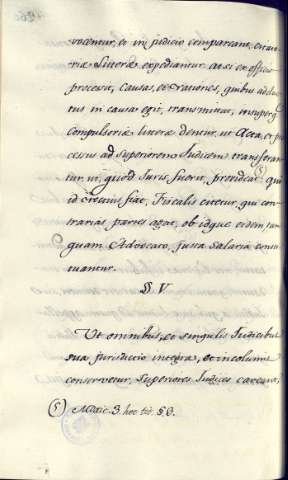 vocentur, et in judicio compareant, citato
riæ Litteræ expediantur at si ex officio
processit, causas, et rationes, quibus adduc
tus in causa egit, transmittat, insuperq.
Compulsoriæ litteræ dentur, ut Acta, et pro
cessus ad Superiorem Judicem transferan
tur, ut, quod Juris fuerit, provideat (5) qui
id circuns fiat, Fiscalis citetur, qui con
trarias partes agat, ob idque eidem, tam
quam Advocato, justa Salaria consti
tuantur.
§ V
Ut omnibus, et singulis Judicibus
sua jurisdictio integra, et incolumis
conservetur, Superiores Judices caveant,
(5) Mexic. 3. hoc tit. § 6.